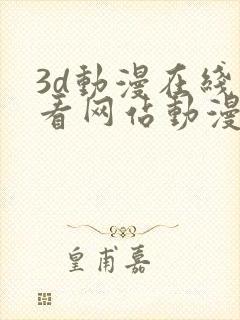 3d動漫在綫
看网佔動漫
皇甫嘉